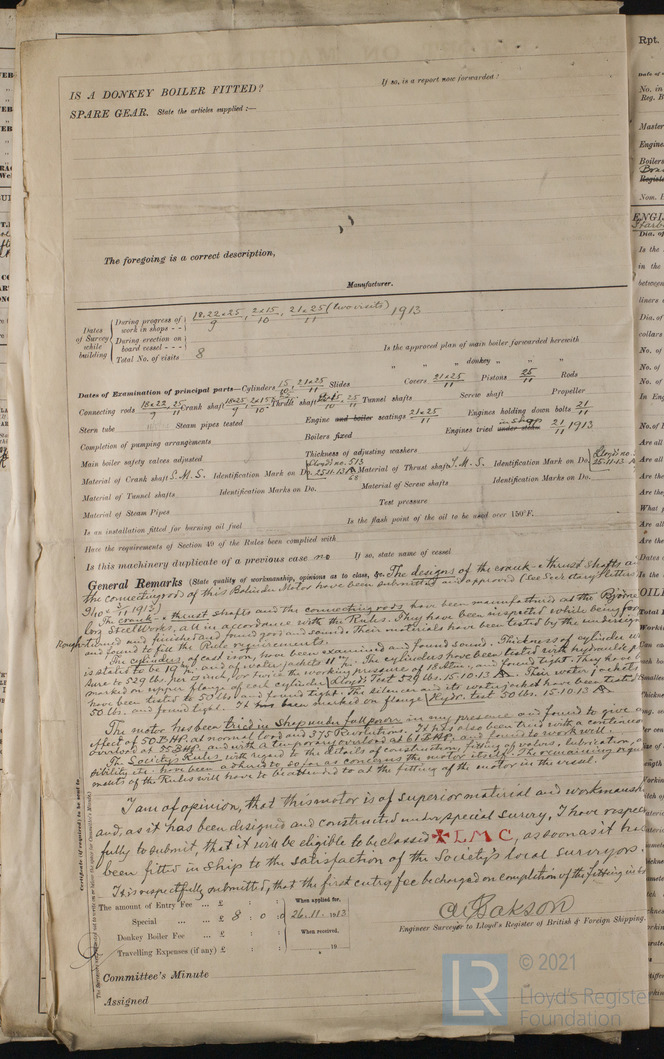 IS A DONKEY BOILER FITTED?
If so, is a report now forwarded?
SPARE GEAR. State the articles supplied :—
The foregoing is a correct description,
Manufacturer.
Dates of Survey while building
During progress of work in shops - - 18.22.25/9, 2.15/10, 21.25/11 (two visits) 1913
During erection on board vessel - - -
Total No. of visits 8
Is the approved plan of main boiler forwarded herewith
" " " donkey " " "
Dates of Examination of principal parts—Cylinders 15/10, 21.25/11 Slides Covers 21.25/11 Pistons 25/11 Rods
Connecting rods 18.22/9, 25/11 Crank shaft Thrust shaft Tunnel shafts Screw shaft Propeller
Stern tube Steam pipes tested Engine and boiler seatings 21.25/11 Engines holding down bolts 21/11
Completion of pumping arrangements Boilers fixed Engines tried under steam in shop 21/11 1913
Main boiler safety valves adjusted Thickness of adjusting washers
Material of Crank shaft S.M.S. Identification Mark on Do. Lloyd's no. 513 25.11.13 Material of Thrust shaft S.M.S. Identification Mark on Do. Lloyd's no. 25.11.13
Material of Tunnel shafts Identification Marks on Do. Material of Screw shafts Identification Marks on Do.
Material of Steam Pipes Test pressure
Is an installation fitted for burning oil fuel Is the flash point of the oil to be used over 150°F.
Have the requirements of Section 49 of the Rules been complied with
Is this machinery duplicate of a previous case no If so, state name of vessel
General Remarks (State quality of workmanship, opinions as to class, &c. The designs of the crank- & thrust shafts and
the connecting rods of this Bolinder Motor have been submitted and approved (See Secretary's letters
1913)
The crank- & thrust shafts and the connecting rods have been manufactured at the
Steel Works, all in accordance with the Rules. They have been inspected while being
Rough-turned and finished and found good and sound. Their materials have been tested by the undersigned
and found to fill the Rule requirements.
The cylinders, of cast iron, have been examined and found sound. Thickness of cylinder
is stated to be 19 m/m and of water jackets 11 m/m. The cylinders have been tested with hydraulic
sure to 529 lbs. per sq inch, or twice the working pressure of 18 Atm., and found tight. They have
marked on upper flange of each cylinder Lloyds Test 529 lbs. 15.10.13 Their water jackets
have been tested to 50 lbs. and found tight. The silencer and its water jacket have been tested
50 lbs. and found tight. It has been marked on flange Hydr. test 50 lbs. 15.10.13
The motor has been tried in Shop under full power in my presence and found to give a
effect of 50 BHP. at normal load and 375 Revolutions. It has also been tried with a continuous
overload at 55 BHP. and with a temporary overload at 61 BHP. and found to work well.
The Society's Rules with regard to the details of construction, fitting of valves, lubrication,
sibility etc. have been adhered to, so far as concerns the motor itself. The remaining requir
ments of the Rules will have to be attended to at the fitting of the motor in the vessel.
I am of opinion, that this motor is of superior material and workmansh
and, as it has been designed and constructed under special survey, I have respec
fully to submit, that it will be eligible to be classed ✠ LMC, as soon as it has
been fitted in Ship to the satisfaction of the Society's local surveyors.
It is respectfully submitted, that the first entry fee be charged on completion of the fitting in
The amount of Entry Fee ... £ : : When applied for,
Special ... ... £ 8 : 0 : 0 26.11.1913
Donkey Boiler Fee ... £ : : When received,
Travelling Expenses (if any) £ : : 19
Engineer Surveyor to Lloyd's Register of British & Foreign Shipping.
Committee's Minute
Assigned
LR
© 2021
Lloyd's Register
Foundation